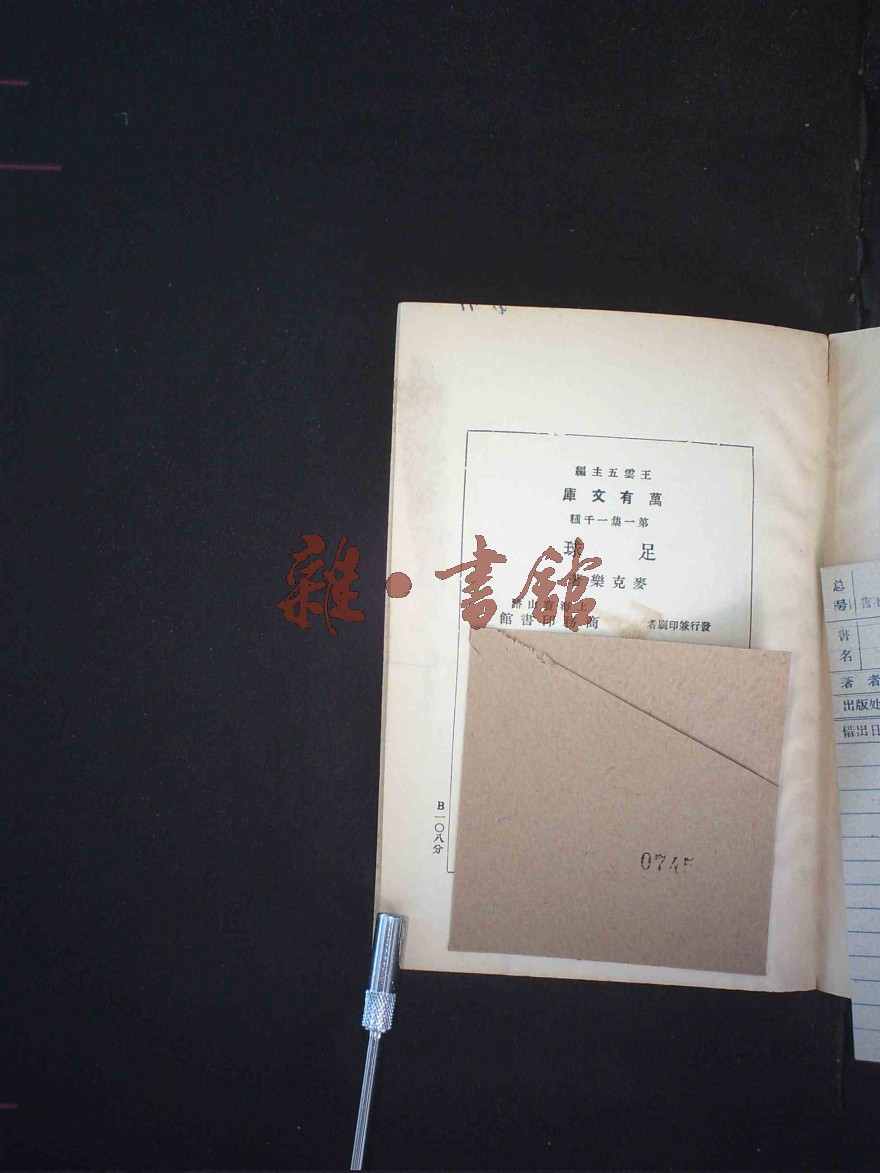 王雲五主編
萬有文庫
第一集一千種
足球
麥克樂著
上海寶山路
發行兼印刷者 商務印書館
B一〇八分
0745
雜·書館
总号
書名
著者
出版处
借出日